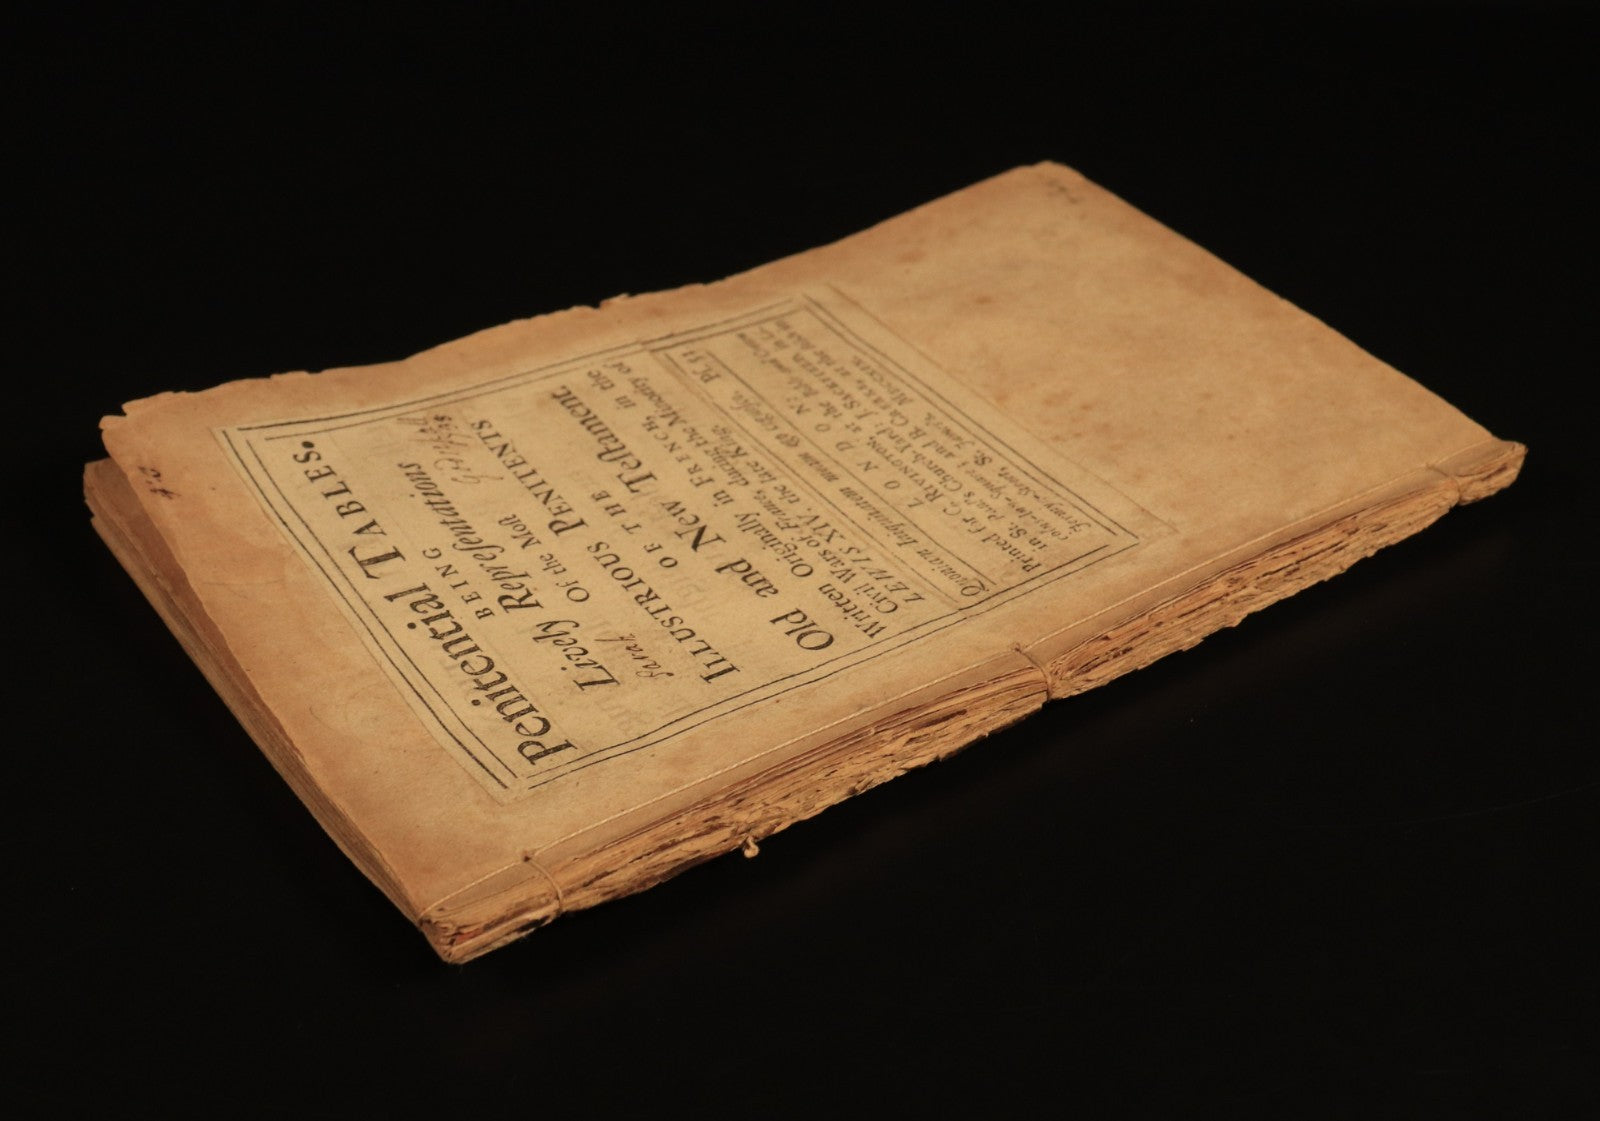 Penitential TABLES.
BEING
Lively Representations
Of the Most
ILLUSTRIOUS PENITENTS
OF THE
Old and New Testament
Written Originally in FRENCH, in the
Civil Wars of France, during the Minority of
LEWIS XIV. the late King.
Quoniam Iniquitatem meam ego cognosco. Ps. 51
LONDON:
Printed for C. RIVINGTON, at the Bible and Crown
in St. Paul's Church-Yard:
Jermyn-Street, St. James's,
Sarah